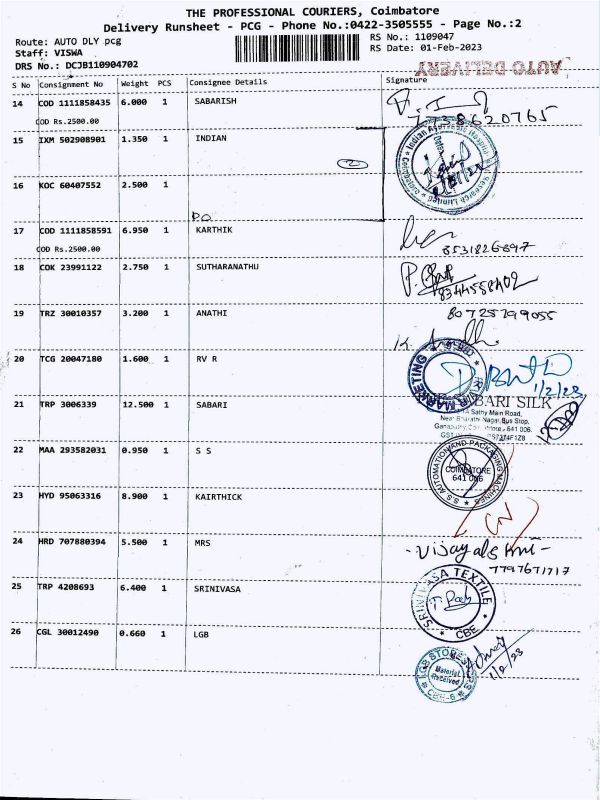 THE PROFESSIONAL COURIERS, Coimbatore
Delivery Runsheet - PCG - Phone No.:0422-3505555 - Page No.:2
Route: AUTO DLY pcg
RS No.: 1109047
Staff: VISWA
RS Date: 01-Feb-2023
DRS No.: DCJB110904702
AUTO DELIVERY
S No Consignment No Weight PCS Consignee Details Signature
14 COD 1111858435 6.000 1 SABARISH
COD Rs.2500.00
7738620765
15 IXM 502908901 1.350 1 INDIAN
2
16 KOC 60407552 2.500 1
P.O
17 COD 1111858591 6.950 1 KARTHIK
COD Rs.2500.00
8531826897
18 COK 23991122 2.750 1 SUTHARANATHU
8344558402
19 TRZ 30010357 3.200 1 ANATHI
80725799055
20 TCG 20047180 1.600 1 RV R
MARKETING
1/2/23
21 TRP 3006339 12.500 1 SABARI
BARI SILK
Sathy Main Road,
Near Bharathi Nagar Bus Stop,
641 006.
22 MAA 293582031 0.950 1 S S
S.S AUTOMATION AND PACKAGING MACHINES
COIMBATORE
641 006
23 HYD 95063316 8.900 1 KAIRTHICK
24 HRD 707880394 5.500 1 MRS
7797671717
25 TRP 4208693 6.400 1 SRINIVASA
SRINIVASA TEXTILE
CBE
26 CGL 30012490 0.660 1 LGB
LGB STORES
Material
Received
CBE-6
1/2/23